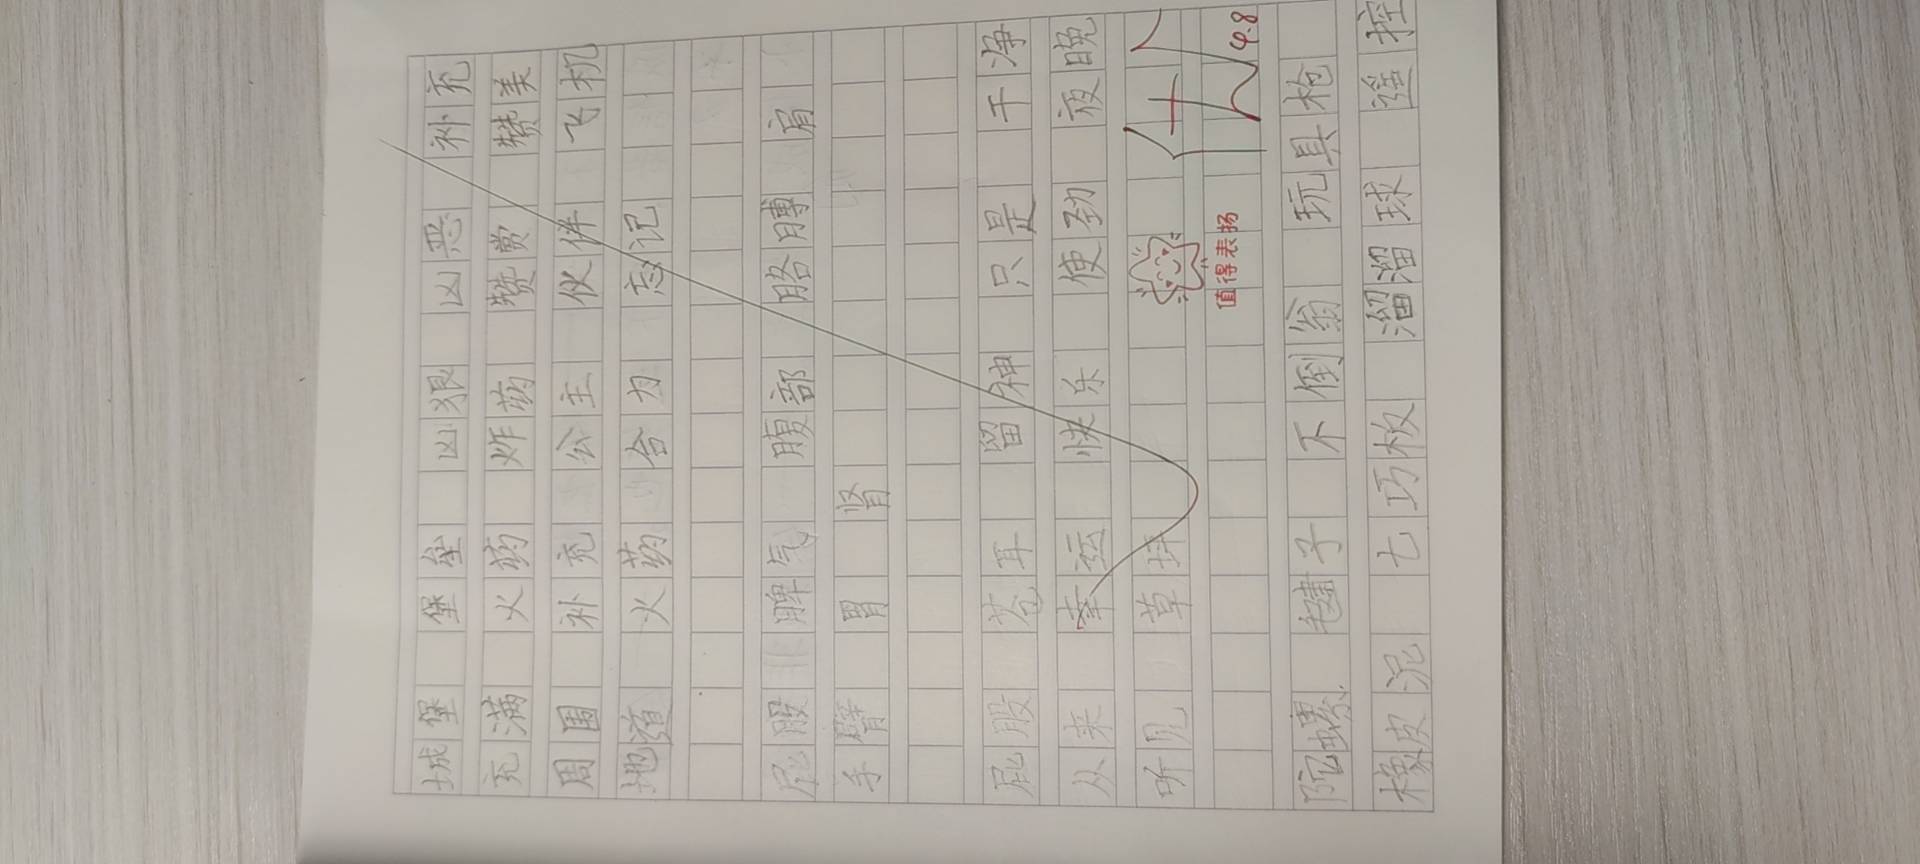 城堡 堡垒 凶狠 凶恶 补充
充满 火药 炸药 赞赏 赞美
周围 补充 公主 伙伴 飞机
地道 火药 合力 忘记
屁股 脾气 腹部 胳膊 肩
手臂 胃 肾
屁股 苍耳 留神 只是 干净
从来 幸运 快乐 使劲 夜晚
听见 草坪
值得表扬
4.8
陀螺 毽子 不倒翁 玩具枪
橡皮泥 七巧板 溜溜球 遥控